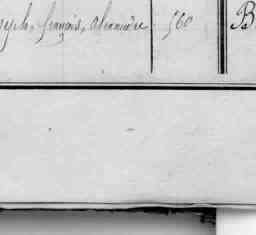 syph, françois, alexandre 560 B